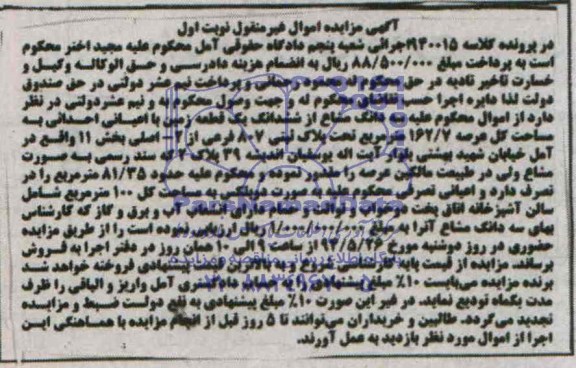 آگهی مزایده اموال غیرمنقول نوبت اول
در پرونده کلاسه ۹۴۰۰۱۵/اجرائی شعبه پنجم دادگاه حقوقی آمل محکوم علیه مجید اختر محکوم
است به پرداخت مبلغ ۸۸/۵۰۰/۰۰۰ ریال به انضمام هزینه دادرسی و حق الوکاله وکیل و
خسارت تاخیر تادیه در حق محکوم له محمود رحمانی و پرداخت نیم عشر دولتی در حق صندوق
دولت لذا دایره اجرا حسب محکوم له و جهت وصول محکوم به و نیم عشر دولتی در نظر
دارد از اموال محکوم علیه سه دانگ مشاع از ششدانگ یک قطعه زمین با اعیانی احداثی به
مساحت کل عرصه ۱۶۲/۷ مترمربع تحت پلاک ثبتی ۸۰۷ فرعی از اصلی بخش ۱۱ واقع در
آمل خیابان شهید بهشتی بلوار آیت اله یوسفیان اندیشه ۳۹ پلاک که سند رسمی به صورت
مشاع ولی در طبیعت مالکین عرصه را مفروز نموده و محکوم علیه حدود ۸۱/۳۵ مترمربع را در
تصرف دارد و اعیانی تصرفی محکوم علیه به صورت دوبلکس به مساحت کل ۱۰۰ مترمربع شامل
سالن آشپزخانه اتاق پخت دوخوابه و توالت و حمام دارای انشعاب آب و برق و گاز که کارشناس
بهای سه دانگ مشاع آنرا به مبلغ ریال ارزیابی نموده است را از طریق مزایده
حضوری در روز دوشنبه مورخ ۹۴/۵/۲۶ از ساعت ۹ الی ۱۰ همان روز در دفتر اجرا به فروش
برساند. مزایده از قیمت پایه کارشناسی پیشنهادی فروخته خواهد شد
برنده مزایده می‌بایست ۱۰٪ مبلغ پیشنهادی را به حساب دادگستری آمل واریز و الباقی را ظرف
مدت یکماه تودیع نماید. در غیر این صورت ۱۰٪ مبلغ پیشنهادی به نفع دولت ضبط و مزایده
تجدید می‌گردد. طالبین و خریداران می‌توانند تا ۵ روز قبل از انجام مزایده با هماهنگی این
اجرا از اموال مورد نظر بازدید به عمل آورند.
ParsNamadData
پایگاه اطلاع رسانی مناقصه و مزایده